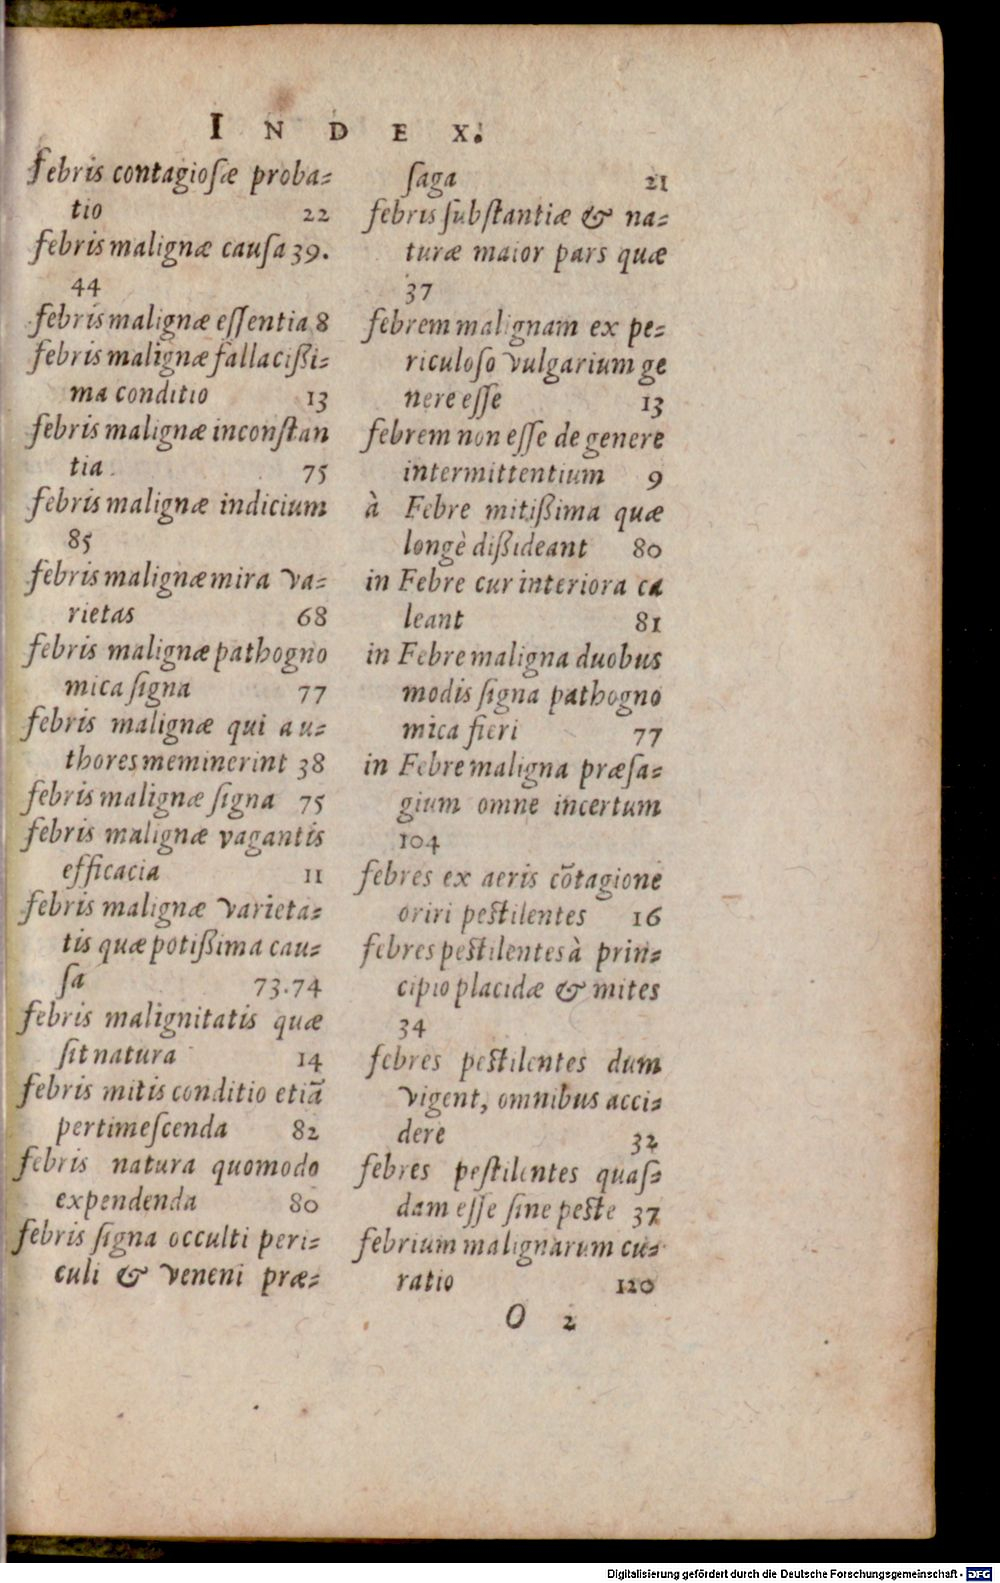 INDEX.
febris contagiosæ proba-
tio 22
febris malignæ causa 39.
44
febris malignæ essentia 8
febris malignæ fallacißi-
ma conditio 13
febris malignæ inconstan
tia. 75
febris malignæ indicium
85
febris malignæ mira va-
rietas 68
febris malignæ pathogno
mica signa 77
febris malignæ qui au-
thores meminerint 38
febris malignæ signa 75
febris malignæ vagantis
efficacia 11
febris malignæ varieta-
tis quæ potißima cau-
sa 73.74
febris malignitatis quæ
sit natura 14
febris mitis conditio etiã
pertimescenda 82
febris natura quomodo
expendenda 80
febris signa occulti peri-
culi & veneni præ-
saga 21
febris substantiæ & na-
turæ maior pars quæ
37
febrem malignam ex pe-
riculoso vulgarium ge
nere esse 13
febrem non esse de genere
intermittentium 9
à Febre mitißima quæ
longè dißideant 80
in Febre cur interiora ca
leant 81
in Febre maligna duobus
modis signa pathogno
mica fieri 77
in Febre maligna præsa-
gium omne incertum
104
febres ex aeris cõtagione
oriri pestilentes 16
febres pestilentes à prin-
cipio placidæ & mites
34
febres pestilentes dum
vigent, omnibus acci-
dere 32
febres pestilentes quas-
dam esse sine peste 37
febrium malignarum cu-
ratio 120
O 2
Digitalisierung gefördert durch die Deutsche Forschungsgemeinschaft - DFG